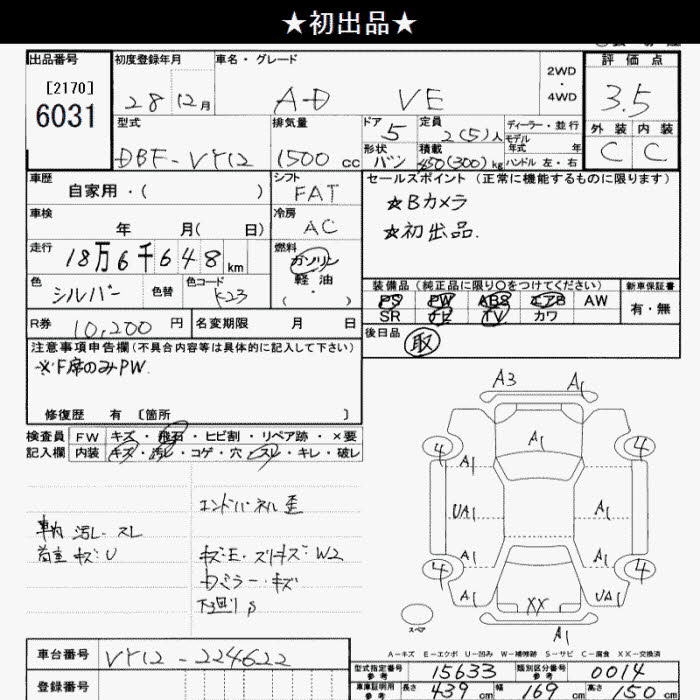 ★初出品★
出品番号
[2170]
6031
初度登録年月
28年12月
車名・グレード
AD VE
2WD
・
4WD
評価点
3.5
外装 内装
C C
型式
DBF-VY12
排気量
1500 cc
ドア 5
形状 バン
定員 2(5)人
積載 450(300)kg
ディーラー・並行
モデル年式 年
ハンドル 左・右
車歴
自家用・( )
シフト
FAT
車検
年 月( 日)
冷房
AC
走行
18万6千648km
燃料
ガソリン
軽油
( ・ )
色
シルバー
色替
色コード
K23
R券 10,200円
名変期限 月 日
セールスポイント (正常に機能するものに限ります)
☆Bカメラ
☆初出品.
装備品 (純正品に限り○をつけてください)
PS PW ABS エアB AW
SR ナビ TV カワ
新車保証書
有・無
後日品
取
注意事項申告欄(不具合内容等は具体的に記入して下さい)
※F席のみPW.
修復歴 有 〔箇所 〕
検査員 FW キズ・飛石・ヒビ割・リペア跡・×要
記入欄 内装 キズ・汚レ・コゲ・穴・スレ・キレ・破レ
エンドパネル歪
車内 汚レ・スレ
荷室 キズ・U
キズE・スリキズ・W2
Dミラー・キズ
下廻りP
A3 A1
A1
4 4
A1
UA1 A1
A1 A1
4 4
A1 XX UA1
A1
スペア
A-キズ E-エクボ U-凹み W-補修跡 S-サビ C-腐食 XX-交換済
車台番号 VY12-224622
登録番号
型式指定番号 参考 15633
類別区分番号 参考 0014
車庫証明用 参考 長さ 439cm 幅 169cm 高さ 150cm